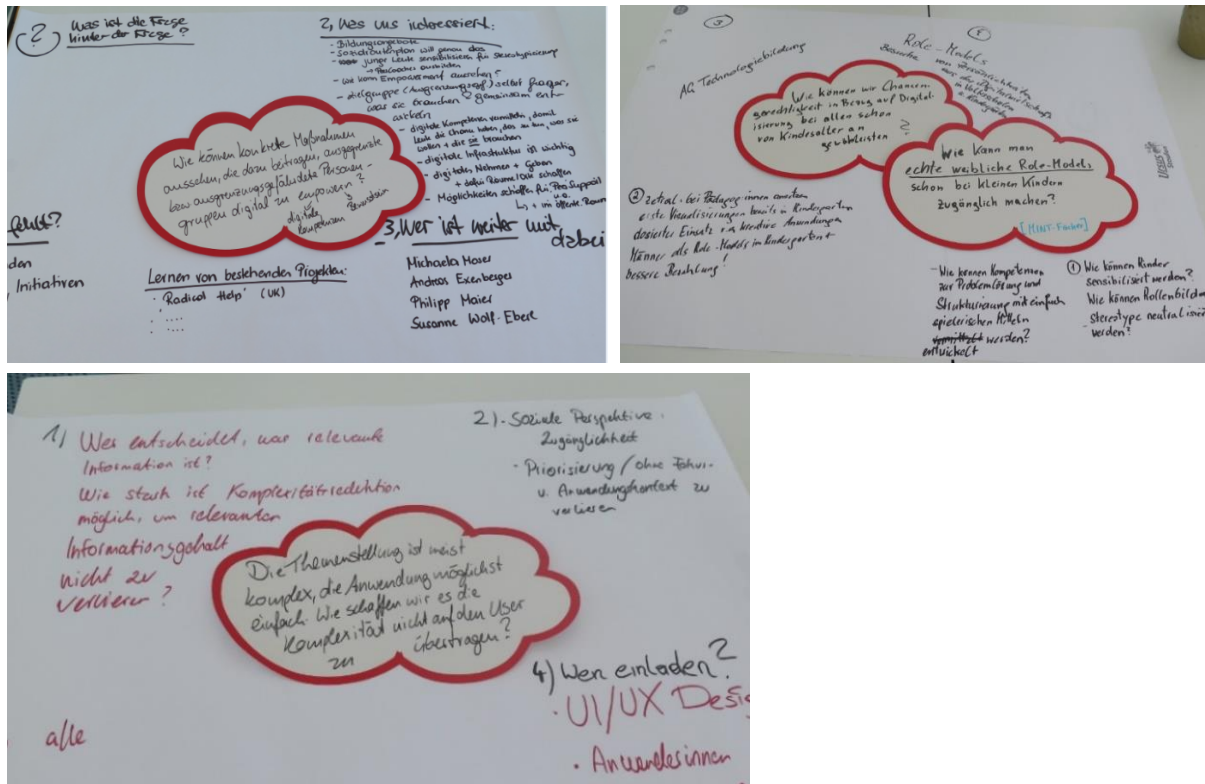 ?
Was ist die Frage
hinter der Frage?
2, Was uns interessiert:
- Bildungsangebote
- junge Leute sensibilisieren für Stereotypisierung
- wie kann Empowerment aussehen?
- Zielgruppe (Ausgrenzungsgef.) selbst fragen,
was sie brauchen & gemeinsam ent-
wickeln
- digitale Kompetenzen vermitteln, damit
Leute die Chance haben, das zu tun, was sie
wollen + die sie brauchen
- digitale Infrastruktur ist wichtig
- digitales Nehmen + Geben
+ dafür Räume/Orte schaffen
- Möglichkeiten schaffen für Peer Support
u.a.
im öffentl. Raum
Wie können konkrete Maßnahmen
aussehen, die dazu beitragen, ausgegrenzte
bzw ausgrenzungsgefährdete Personen-
gruppen digital zu empowern?
digitale
Kompetenzen
Bewusstsein
fehlt?
den
Initiativen
Lernen von bestehenden Projekten:
'Radical Help' (UK)
....
....
3, Wer ist weiter mit
dabei
Michaela Moser
Andreas Exenberger
Philipp Maier
Susanne Wolf-Eberl
3
AG Technologiebildung
Role-Models
Besuche von Persönlichkeiten
aus der Digitalwirtschaft
in Volksschulen
+ Kindergärten
Wie können wir Chancen-
gerechtigkeit in Bezug auf Digital-
isierung bei allen schon
von Kindesalter an
gewährleisten
?
Wie kann man
echte weibliche Role-Models
schon bei kleinen Kindern
zugänglich machen?
[MINT-Fächer]
② zentral - bei Pädagog:innen ansetzen
erste Visualisierungen bereits in Kindergarten
dosierter Einsatz in kreative Anwendungen
Männer als Role-Models im Kindergarten +
bessere Bezahlung!
- Wie können Kompetenzen
zur Problemlösung und
Strukturierung mit einfach
spielerischen Mitteln
vermittelt werden?
entwickelt
① Wie können Kinder
sensibilisiert werden?
Wie können Rollenbilder
- Stereotype neutralisiert
werden?
1) Wer entscheidet, was relevante
Information ist?
Wie stark ist Komplexitätsreduktion
möglich, um relevanten
Informationsgehalt
nicht zu
verlieren?
2) - Soziale Perspektive:
Zugänglichkeit
- Priorisierung / ohne Fokus-
u. Anwendungskontext zu
verlieren
Die Themenstellung ist meist
komplex, die Anwendung möglichst
einfach. Wie schaffen wir es die
Komplexität nicht auf den User
zu übertragen?
4) Wen einladen?
· UI/UX Desig
· Anwenderinnen
alle